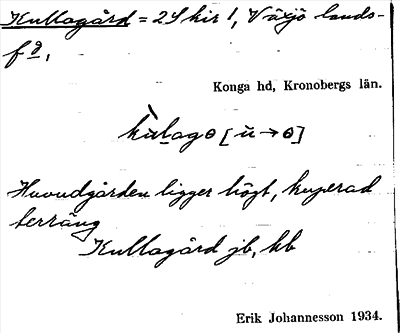 Kullagård = 24 kir 1, Växjö lands-
fg,
Konga hd, Kronobergs län.
kùlagɵ [ù → ɵ]
Huvudgården ligger högt, kuperad
terräng
Kullagård jb, kb
Erik Johannesson 1934.